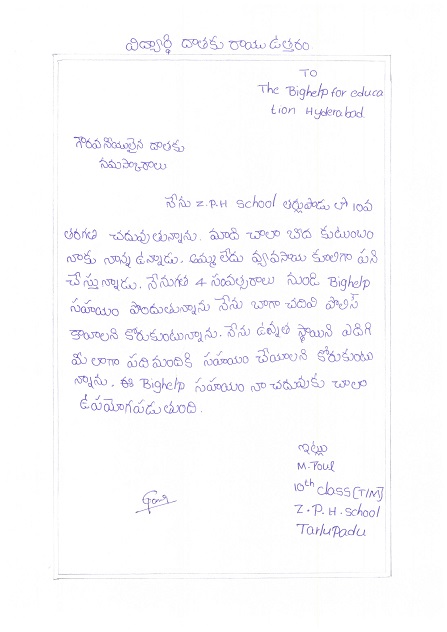 విద్యార్థి దాతకు రాయు ఉత్తరం
TO
The Bighelp for educa
tion Hyderabad.
గౌరవనీయులైన దాతకు
నమస్కారాలు
నేను Z.P.H School తర్లుపాడు లో 10వ
తరగతి చదువుతున్నాను. మాది చాలా బీద కుటుంబం
నాకు నాన్న ఉన్నాడు. అమ్మ లేదు వ్యవసాయ కూలిగా పని
చేస్తున్నాడు. నేను గత 4 సంవత్సరాలు నుండి Bighelp
సహయం పొందుతున్నాను నేను బాగా చదివి పోలిస్
కావాలని కోరుకుంటున్నాను. నేను ఉన్నత స్థాయిని ఎదిగి
మీ లాగా పది మందికి సహయం చేయాలని కోరుకుంటు
న్నాను. ఈ Bighelp సహయం నా చదువుకు చాలా
ఉపయోగపడుతుంది.
ఇట్లు
M. Poul
10th class [T/M]
Z.P.H.school
TarluPadu